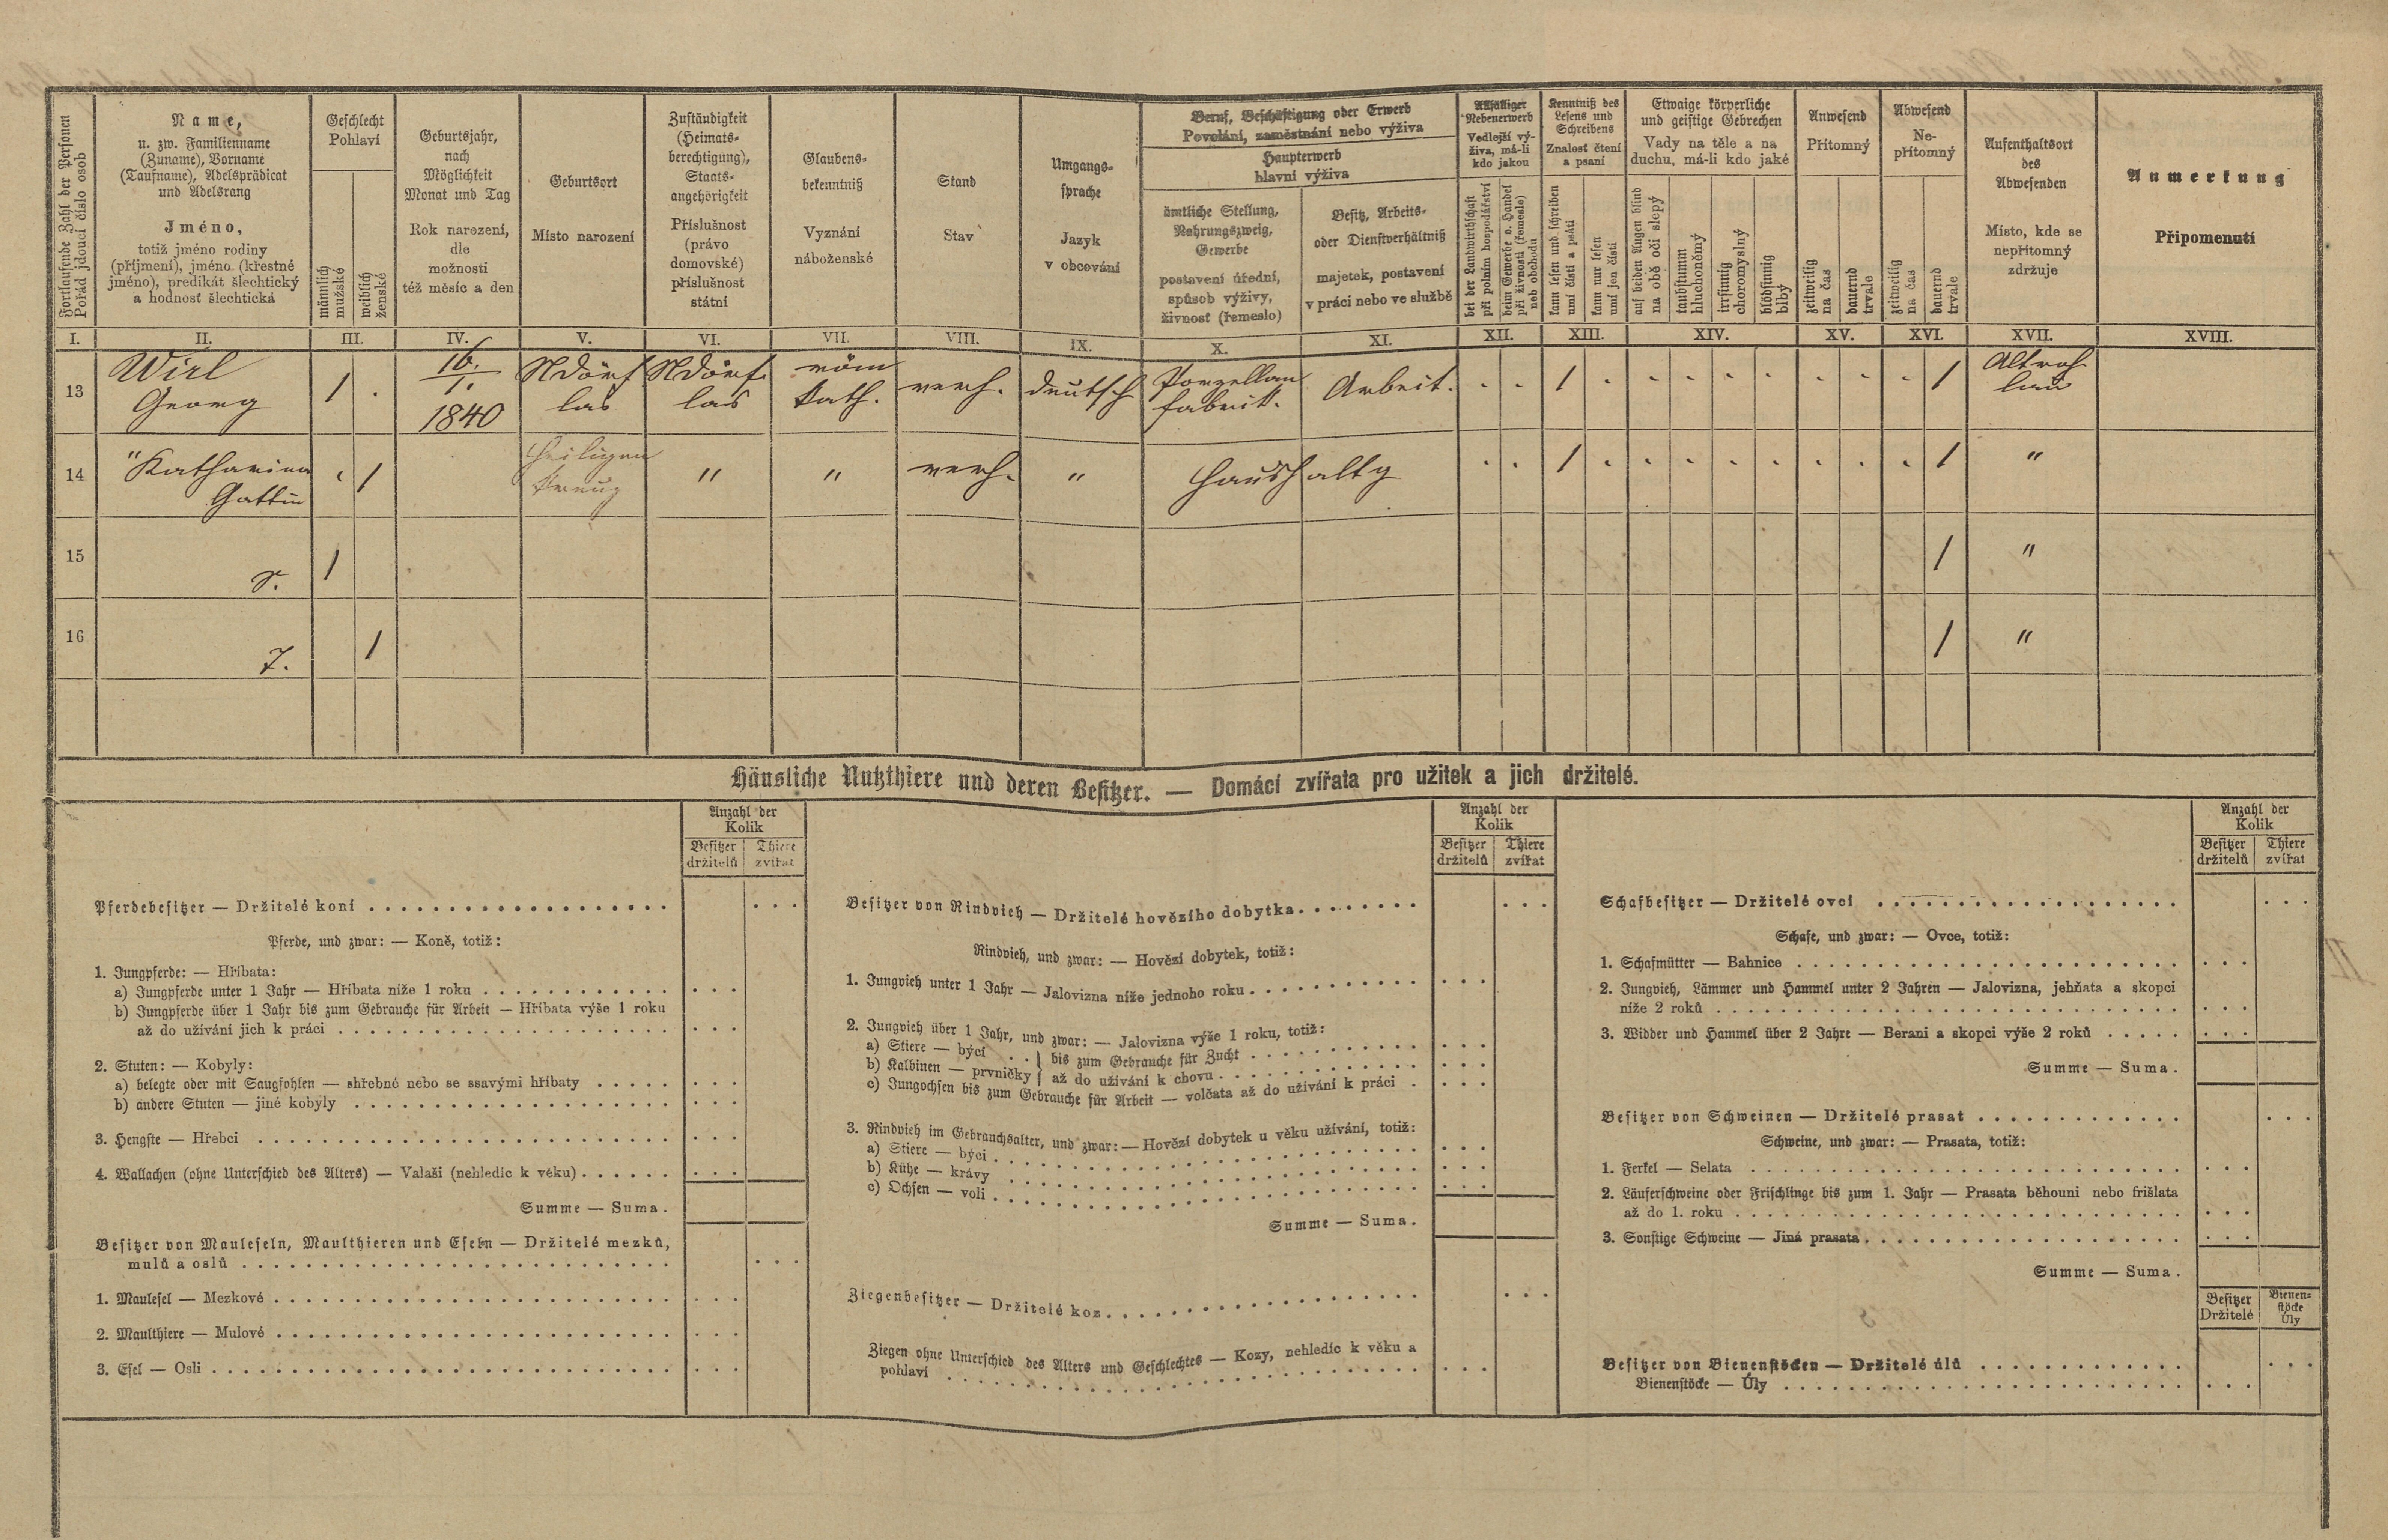 Fortlaufende Zahl der Personen
Pořád jdoucí číslo osob
Name,
u. zw. Familienname
(Zuname), Vorname
(Taufname), Adelsprädicat
und Adelsrang
Jméno,
totiž jméno rodiny
(příjmení), jméno (křestné
jméno), predikát šlechtický
a hodnosť šlechtická
Geschlecht
Pohlaví
männlich
mužské
weiblich
ženské
Geburtsjahr,
nach
Möglichkeit
Monat und Tag
Rok narození,
dle
možnosti
též měsíc a den
Geburtsort
Místo narození
Zuständigkeit
(Heimats-
berechtigung),
Staats-
angehörigkeit
Příslušnost
(právo
domovské)
příslušnost
státní
Glaubens-
bekenntniß
Vyznání
náboženské
Stand
Stav
Umgangs-
sprache
Jazyk
v obcování
Beruf, Beschäftigung oder Erwerb
Povolání, zaměstnání nebo výživa
Haupterwerb
hlavní výživa
ämtliche Stellung,
Nahrungszweig,
Gewerbe
postavení úřední,
spůsob výživy,
živnosť (řemeslo)
Besitz, Arbeits-
oder Dienstverhältniß
majetek, postavení
v práci nebo ve službě
Allfälliger
Nebenerwerb
Vedlejší vý-
živa, má-li
kdo jakou
bei der Landwirthschaft
při polním hospodářství
beim Gewerbe o. Handel
při živnosti (řemesle)
neb obchodu
Kenntniß des
Lesens und
Schreibens
Znalosť čtení
a psaní
kann lesen und schreiben
umí čísti a psáti
kann nur lesen
umí jen čísti
Etwaige körperliche
und geistige Gebrechen
Vady na těle a na
duchu, má-li kdo jaké
auf beiden Augen blind
na obě oči slepý
taubstumm
hluchoněmý
irrsinnig
choromyslný
blödsinnig
blbý
Anwesend
Přítomný
zeitweilig
na čas
dauernd
trvale
Abwesend
Ne-
přítomný
zeitweilig
na čas
dauernd
trvale
Aufenthaltsort
des
Abwesenden
Místo, kde se
nepřítomný
zdržuje
Anmerkung
Připomenutí
I. II. III. IV. V. VI. VII. VIII. IX. X. XI. XII. XIII. XIV. XV. XVI. XVII. XVIII.
13 Wirl 1 . 16. Ndörf Ndörf röm verh. deutsch Porzellan Arbeit. . . 1 . . . . . . . . 1 Altroh
Georg 1. las las kath. fabrik. lau
1840
14 " Katharina . 1 Heiligen " " verh. " Haushaltg . . 1 . . . . . . . . 1 "
Gattin Kreuz
15 S. 1 1 "
16 T. 1 1 "
Häusliche Nutzthiere und deren Besitzer. — Domácí zvířata pro užitek a jich držitelé.
Anzahl der
Kolik
Besitzer Thiere
držitelů zvířat
Pferdebesitzer — Držitelé koní
Pferde, und zwar: — Koně, totiž:
1. Jungpferde: — Hříbata:
a) Jungpferde unter 1 Jahr — Hříbata níže 1 roku
b) Jungpferde über 1 Jahr bis zum Gebrauche für Arbeit — Hříbata výše 1 roku
až do užívání jich k práci
2. Stuten: — Kobyly:
a) belegte oder mit Saugfohlen — shřebné nebo se ssavými hříbaty
b) andere Stuten — jiné kobyly
3. Hengste — Hřebci
4. Wallachen (ohne Unterschied des Alters) — Valaši (nehledíc k věku)
Summe — Suma.
Besitzer von Mauleseln, Maulthieren und Eseln — Držitelé mezků,
mulů a oslů
1. Maulesel — Mezkové
2. Maulthiere — Mulové
3. Esel — Osli
Anzahl der
Kolik
Besitzer Thiere
držitelů zvířat
Besitzer von Rindvieh — Držitelé hovězího dobytka
Rindvieh, und zwar: — Hovězí dobytek, totiž:
1. Jungvieh unter 1 Jahr — Jalovizna níže jednoho roku
2. Jungvieh über 1 Jahr, und zwar: — Jalovizna výše 1 roku, totiž:
a) Stiere — býci . . } bis zum Gebrauche für Zucht
b) Kalbinen — prvničky } až do užívání k chovu
c) Jungochsen bis zum Gebrauche für Arbeit — volčata až do užívání k práci
3. Rindvieh im Gebrauchsalter, und zwar: — Hovězí dobytek u věku užívání, totiž:
a) Stiere — býci
b) Kühe — krávy
c) Ochsen — voli
Summe — Suma.
Ziegenbesitzer — Držitelé koz
Ziegen ohne Unterschied des Alters und Geschlechtes — Kozy, nehledíc k věku a
pohlaví
Anzahl der
Kolik
Besitzer Thiere
držitelů zvířat
Schafbesitzer — Držitelé ovcí
Schafe, und zwar: — Ovce, totiž:
1. Schafmütter — Bahnice
2. Jungvieh, Lämmer und Hammel unter 2 Jahren — Jalovizna, jehňata a skopci
níže 2 roků
3. Widder und Hammel über 2 Jahre — Berani a skopci výše 2 roků
Summe — Suma.
Besitzer von Schweinen — Držitelé prasat
Schweine, und zwar: — Prasata, totiž:
1. Ferkel — Selata
2. Läuferschweine oder Frischlinge bis zum 1. Jahr — Prasata běhouni nebo frišlata
až do 1. roku
3. Sonstige Schweine — Jiná prasata
Summe — Suma.
Besitzer Bienen-
Držitelé stöcke
Úly
Besitzer von Bienenstöcken — Držitelé úlů
Bienenstöcke — Úly